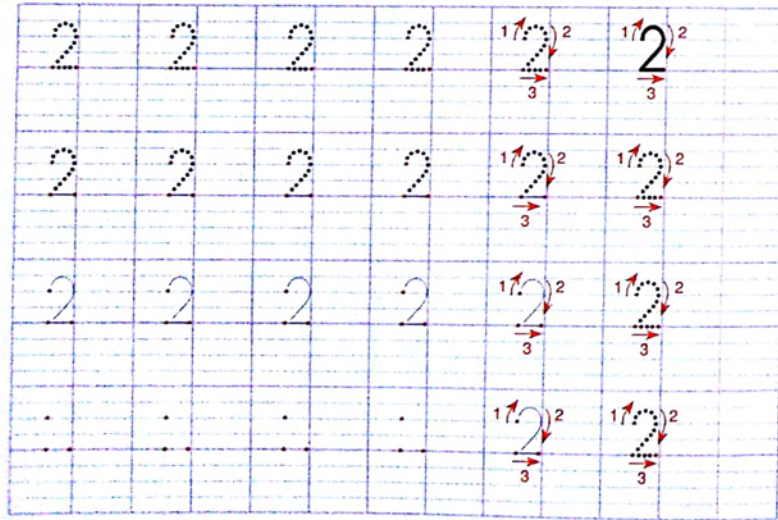 2 2 2 2 1 2 2 1 2 2
3 3
2 2 2 2 1 2 2 1 2 2
3 3
2 2 2 2 1 2 2 1 2 2
3 3
1 2 2 1 2 2
3 3